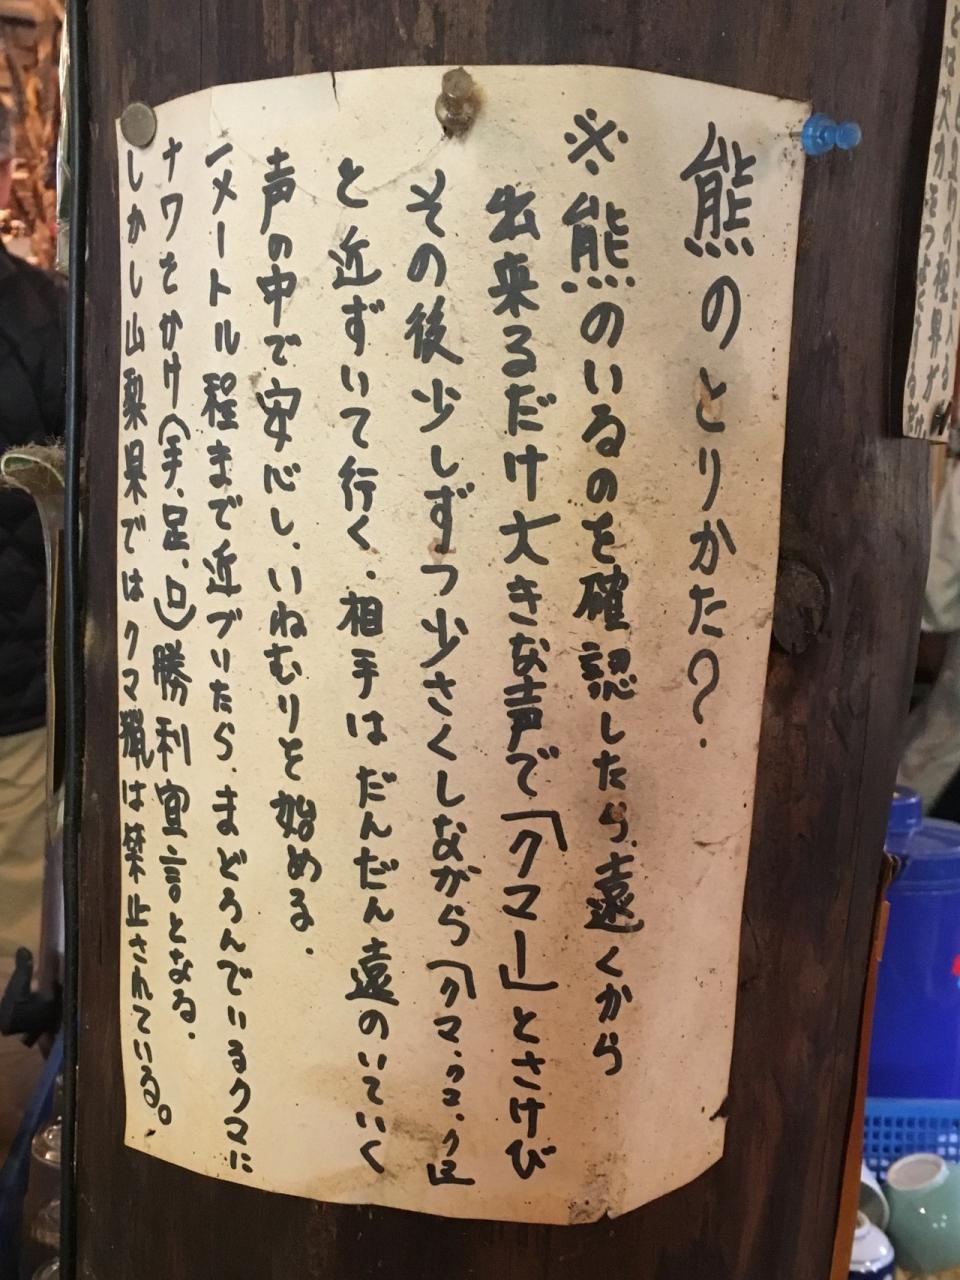 熊のとりかた?.
※熊のいるのを確認したら、遠くから
出来るだけ大きな声で「クマー」とさけび
その後少しずつ少さくしながら「クマ.クマ.クマ」
と近ずいて行く.相手はだんだん遠のいていく
声の中で安心し、いねむりを始める.
一メートル程まで近づいたら.まどろんでいるクマに
ナワをかけ(手、足、口)勝利宣言となる.
しかし山梨県ではクマ猟は禁止されている。